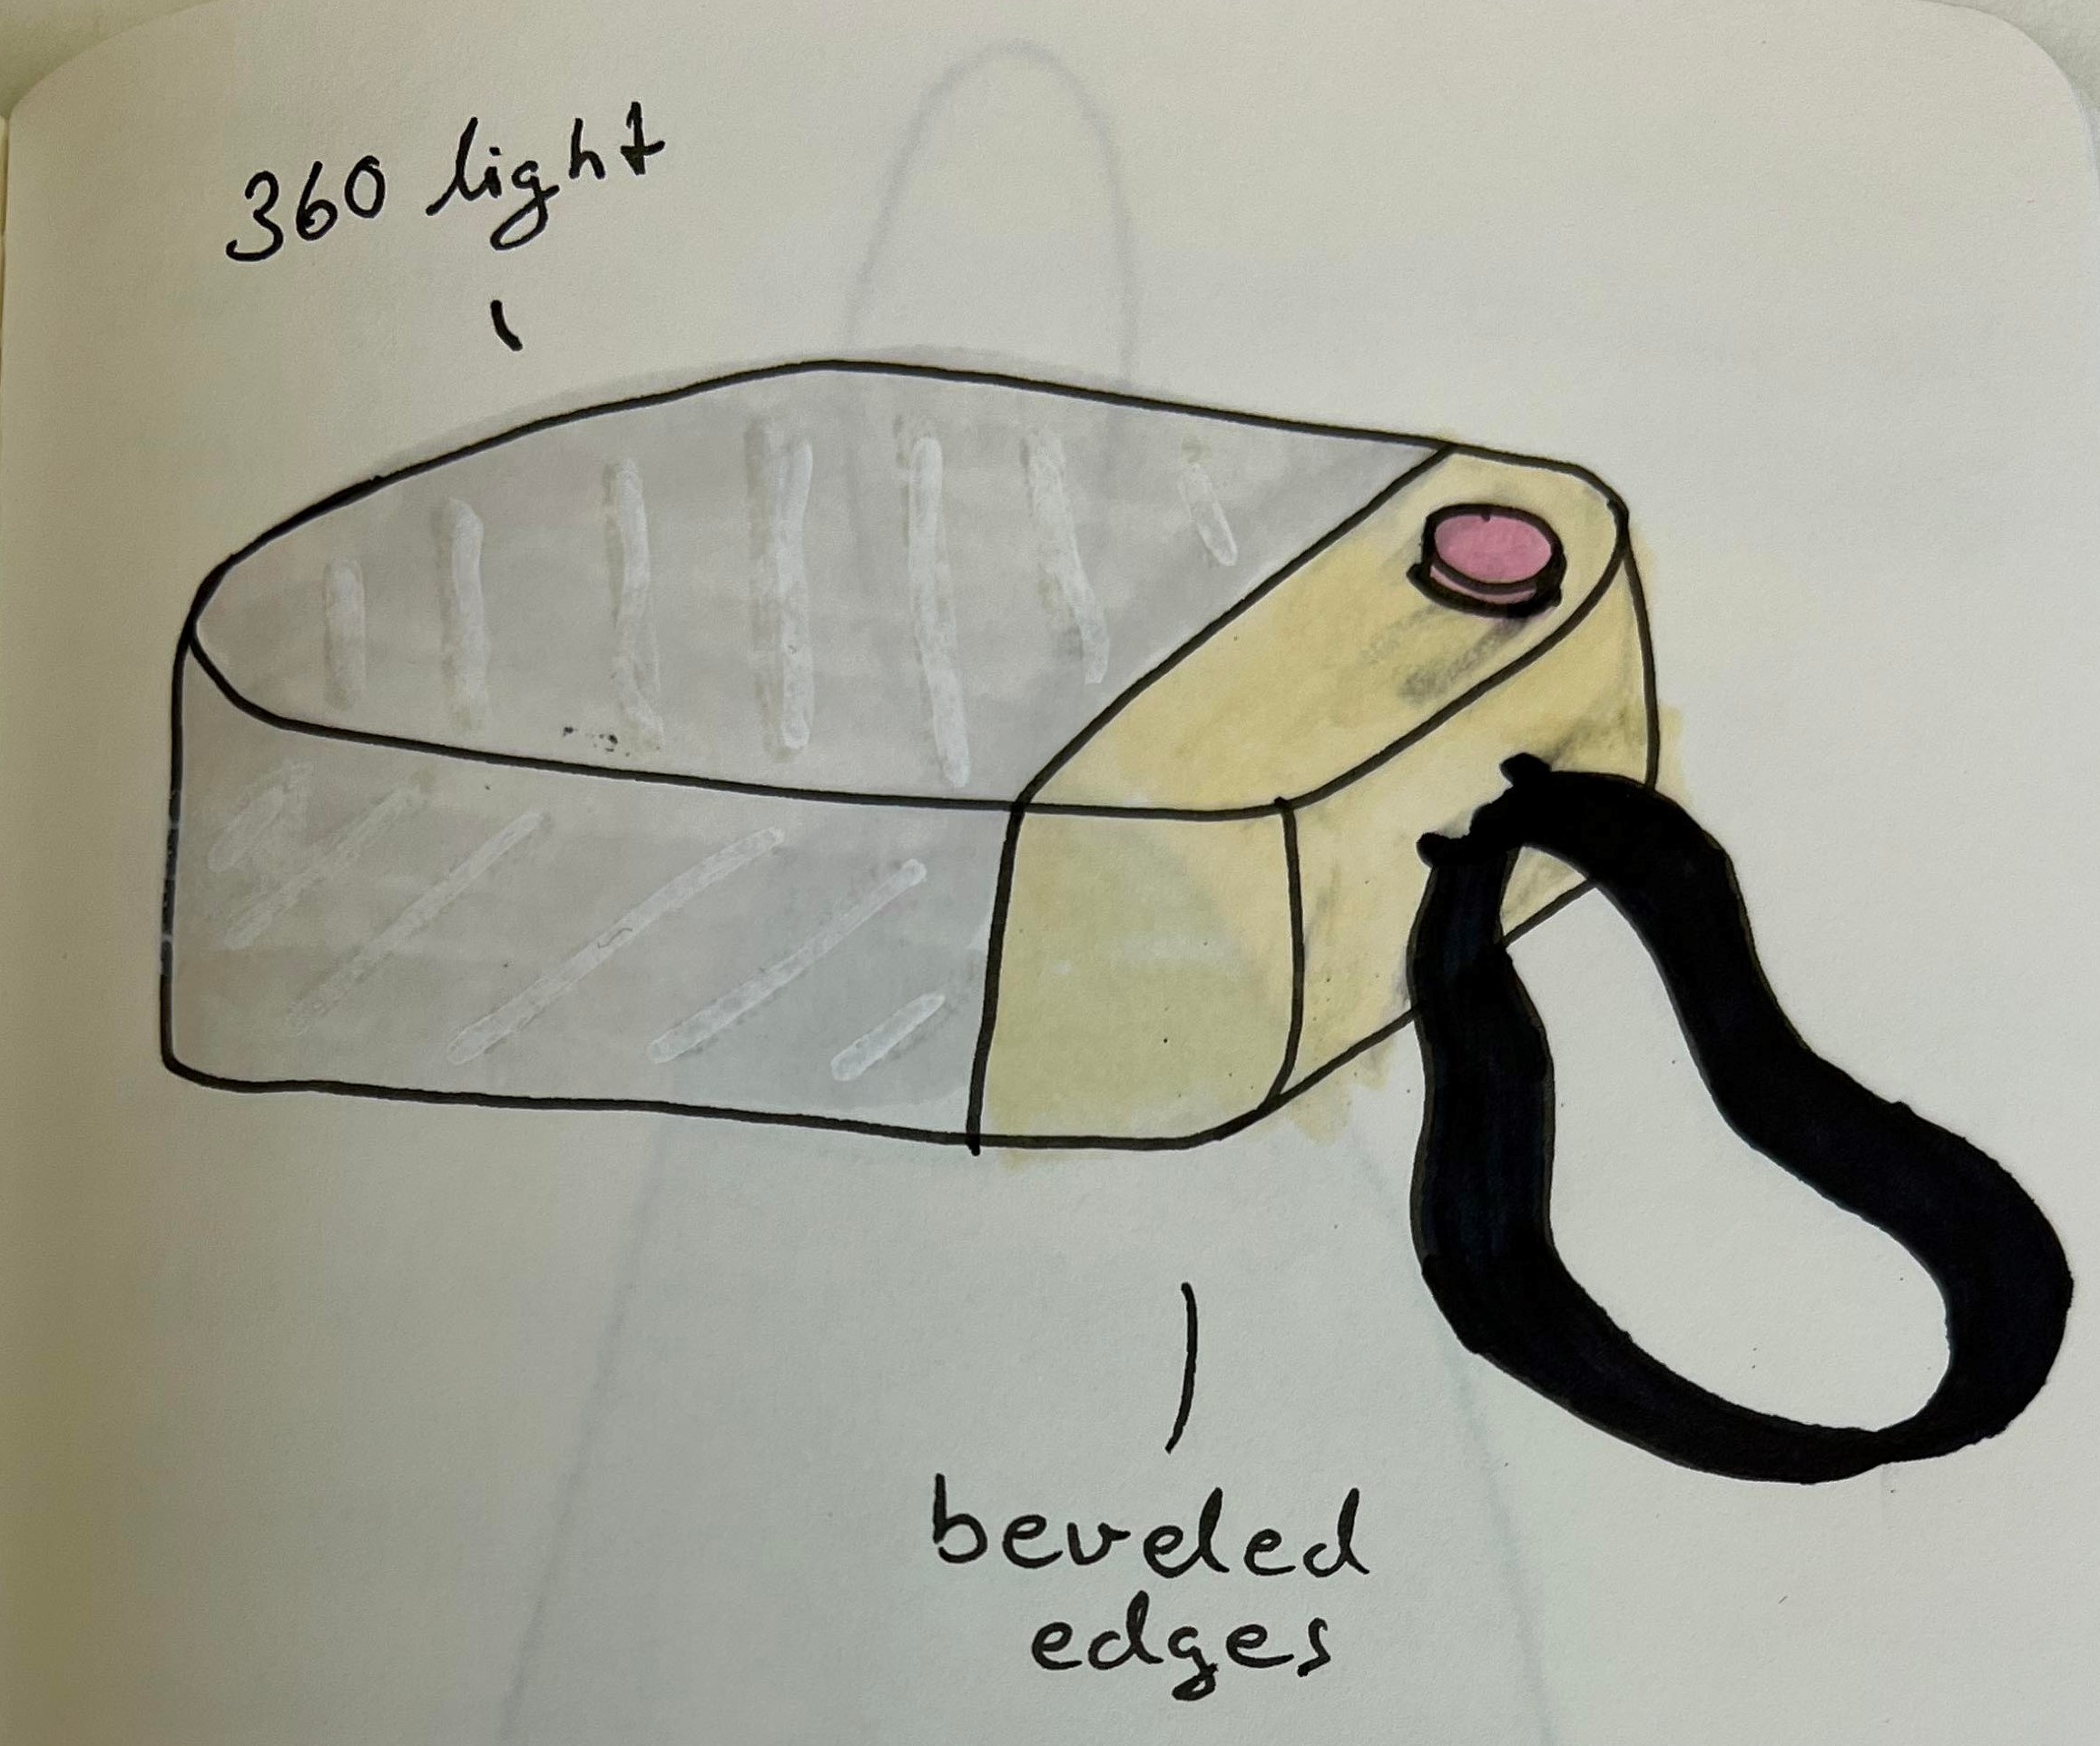 360 light
beveled
edges